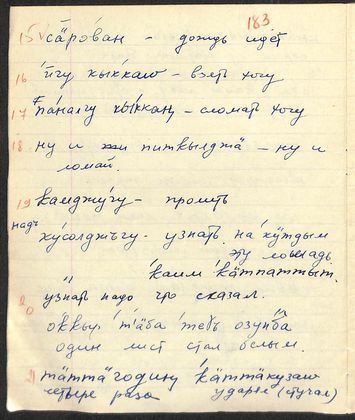 183
15 са́ро́ван – дождь идёт
16 и́гу кы́ккаш – взять хочу
17 па́налгу кы́ккаң – сломать хочу
18. ну и питкылджӓ – ну и
ломай.
19 камджу́гу – пролить
надъ
ху́солджъгу – узнать на ку́ждым
эту лошадь.
" ка́им кӓ́тпаттыт.
узнать надо что сказал.
20
о́ккыр та́ба тебъ озуңба
один лист стал белым.
21 тӓ́ттӓ годину кӓ́ттӓкузаш
четыре раза ударил (стучал)